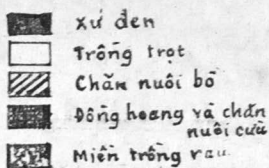 Xứ đen
Trồng trọt
Chăn nuôi bò
Đồng hoang và chăn
nuôi cừu
Miền trồng rau